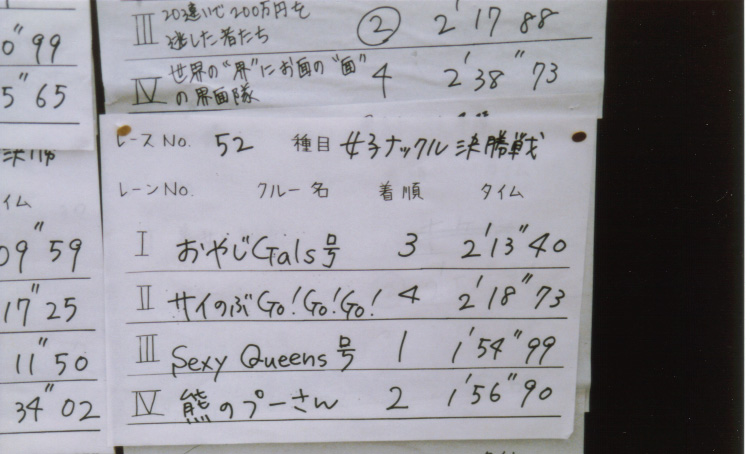 0"99
5"65
III 20違いで200万円を
逃した者たち ② 2'17 88
IV 世界の"界"にお面の"面"
の界面隊 4 2'38"73
レースNo. 52 種目 女子ナックル決勝戦
レーンNo. クルー名 着順 タイム
I おやじGals号 3 2'13"40
II サイのぶGo!Go!Go! 4 2'18"73
III Sexy Queens号 1 1'54"99
IV 熊のプーさん 2 1'56"90
イム
09"59
17"25
11"50
34"02